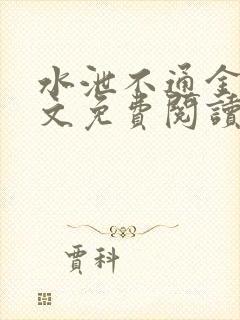 水泄不通全
文免費閱讀
賈科